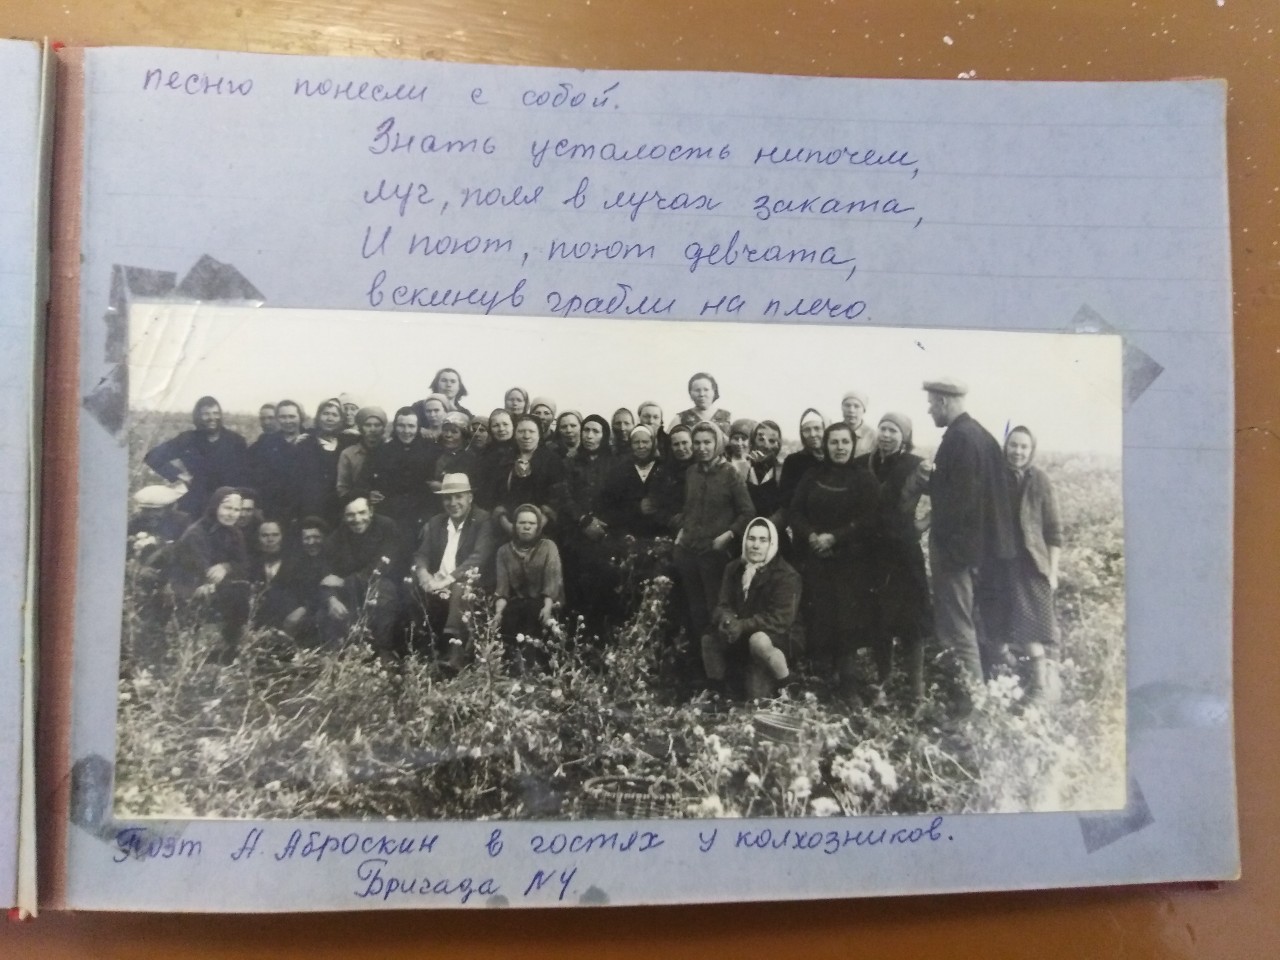 песню понесли с собой.
Знать усталость нипочем,
луг, поля в лучах заката,
И поют, поют девчата,
вскинув грабли на плечо.
Поэт А. Аброскин в гостях у колхозников.
Бригада N4.